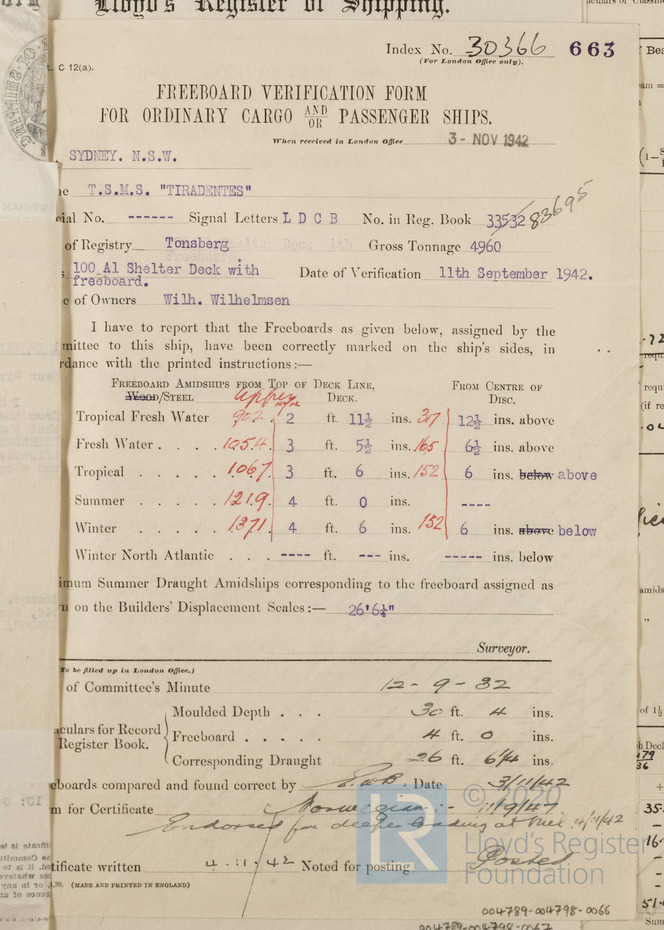 Lloyd's Register of Shipping.
Index No. 30366 663
(For London Office only).
C 12(a).
FREEBOARD VERIFICATION FORM
FOR ORDINARY CARGO AND/OR PASSENGER SHIPS.
When received in London Office 3 - NOV 1942
SYDNEY. N.S.W.
T.S.M.S. "TIRADENTES"
ial No. ------ Signal Letters L D C B No. in Reg. Book 33532 83695
of Registry Tonsberg Gross Tonnage 4960
100 A1 Shelter Deck with
freeboard. Date of Verification 11th September 1942.
of Owners Wilh. Wilhelmsen
I have to report that the Freeboards as given below, assigned by the
mittee to this ship, have been correctly marked on the ship's sides, in
rdance with the printed instructions:—
FREEBOARD AMIDSHIPS FROM TOP OF DECK LINE, FROM CENTRE OF
WOOD/STEEL Upper DECK. DISC.
Tropical Fresh Water 902 2 ft. 11½ ins. 317 12½ ins. above
Fresh Water 1054 3 ft. 5½ ins. 165 6½ ins. above
Tropical 1067 3 ft. 6 ins. 152 6 ins. below above
Summer 1219 4 ft. 0 ins. ----
Winter 1371 4 ft. 6 ins. 152 6 ins. above below
Winter North Atlantic ---- ft. --- ins. ----- ins. below
imum Summer Draught Amidships corresponding to the freeboard assigned as
n on the Builders' Displacement Scales:— 26'6¼"
Surveyor.
To be filled up in London Office.)
of Committee's Minute 12-9-32
Moulded Depth 30 ft. 4 ins.
culars for Record
Register Book.
Freeboard 4 ft. 0 ins.
Corresponding Draught 26 ft. 6¼ ins.
eboards compared and found correct by Date 3/11/42
m for Certificate Norwegian
Endorsed for deeper loading at 4/11/42
tificate written 4.11.42 Noted for posting Posted
(MADE AND PRINTED IN ENGLAND)
LR © 2020
Lloyd's Register
Foundation
004789-004798-0066
004789-004798-0067